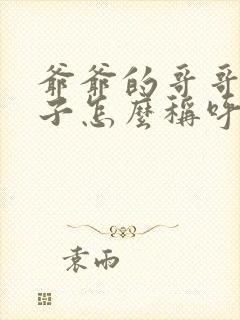 爺爺的哥哥
子怎麼稱呼
袁雨